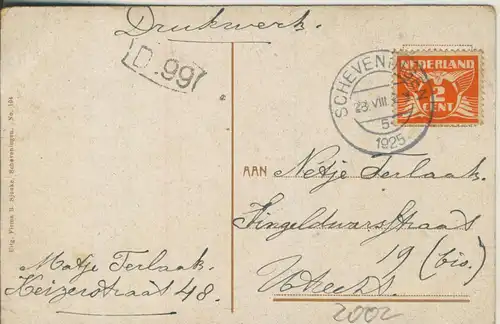 Drukwerk.
D.99
SCHEVENINGEN
23 VIII
5
1925
NEDERLAND
2
CENT
AAN Netje Terlaak.
Singeldwarsstraat
19 (bis.)
Utrecht.
Matje Terlaak.
Keizerstraat 48.
2002
Uitg. Firma B. Sjouke, Scheveningen. No. 104